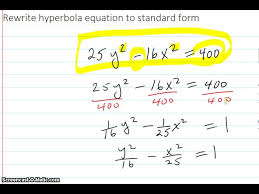 Rewrite hyperbola equation to standard form
25y² - 16x² = 400
25y²/400 - 16x²/400 = 400/400
1/16 y² - 1/25 x² = 1
y²/16 - x²/25 = 1
Screencast-O-Matic.com